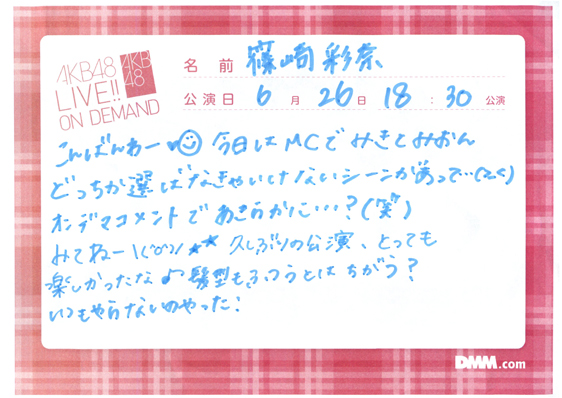 AKB48 LIVE!! ON DEMAND
AKB48
名前 篠崎彩奈
公演日 6月26日 18:30 公演
こんばんわー♥☺ 今日はMCでみきとみおん
どっちか選ばなきゃいけないシーンがあって…(>_<)
オンデマコメントであきらかに…?(笑)
みてねー\(^o^)/ ★★ 久しぶりの公演、とっても
楽しかったな♪ 髪型もふつうとはちがう?
いつもやらないのやった:
DMM.com